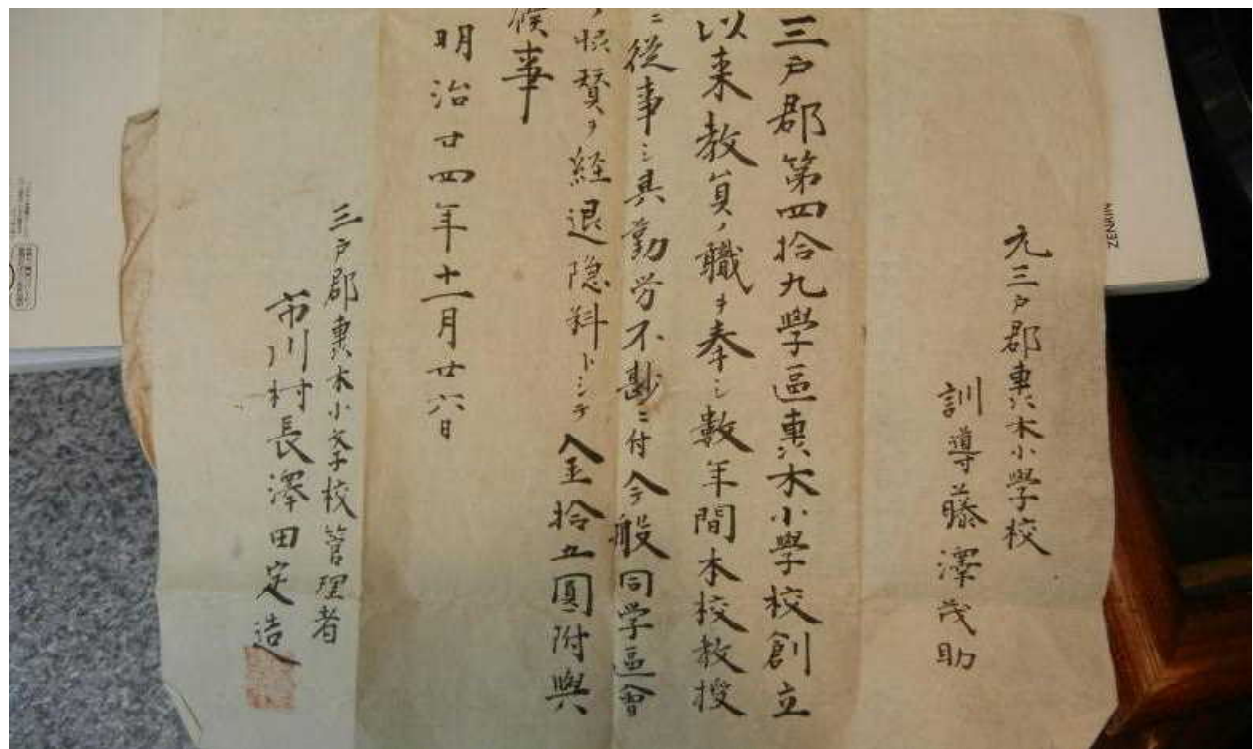 元三戸郡轟木小學校
訓導藤澤茂助
三戸郡第四拾九學區轟木小學校創立
以来教員ノ職ヲ奉シ數年間本校教授
ニ從事シ其勤労不尠ニ付今般同学區會
ノ協賛ヲ経退隠料トシテ金拾五圓附與
候事
明治廿四年十一月廿六日
三戸郡轟木小学校管理者
市川村長澤田定造